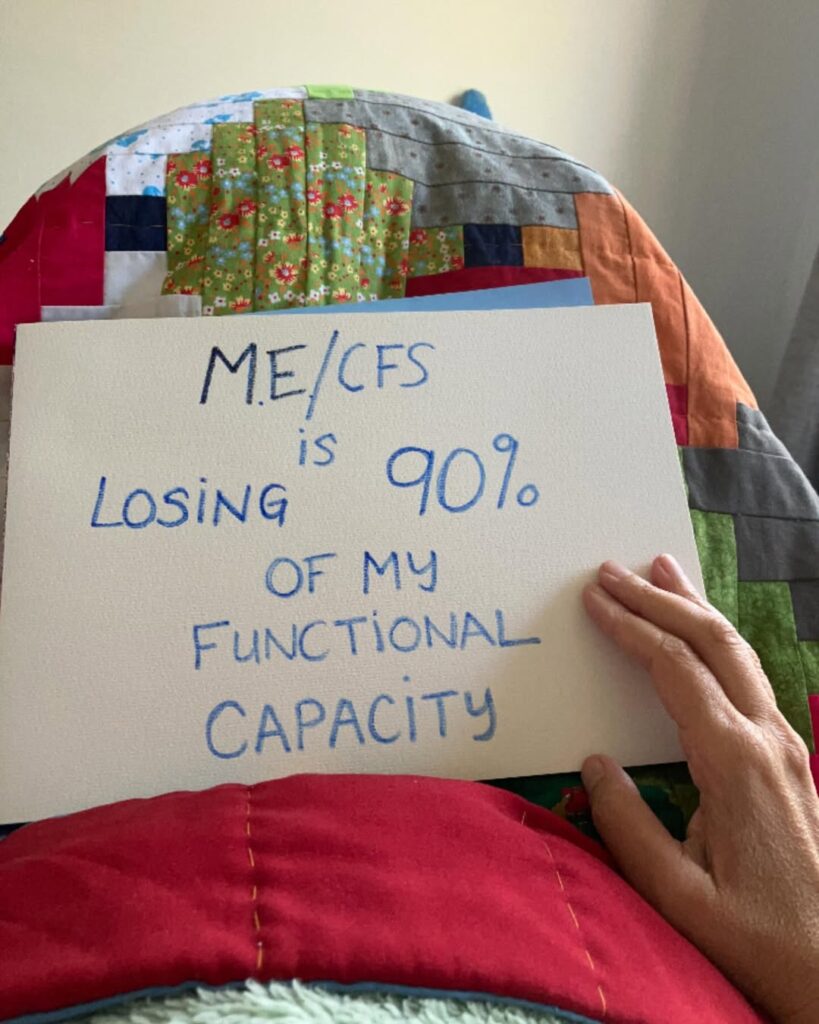 M.E./CFS
is
LOSiNG 90%
OF MY
FUNCTiONAL
CAPACiTY